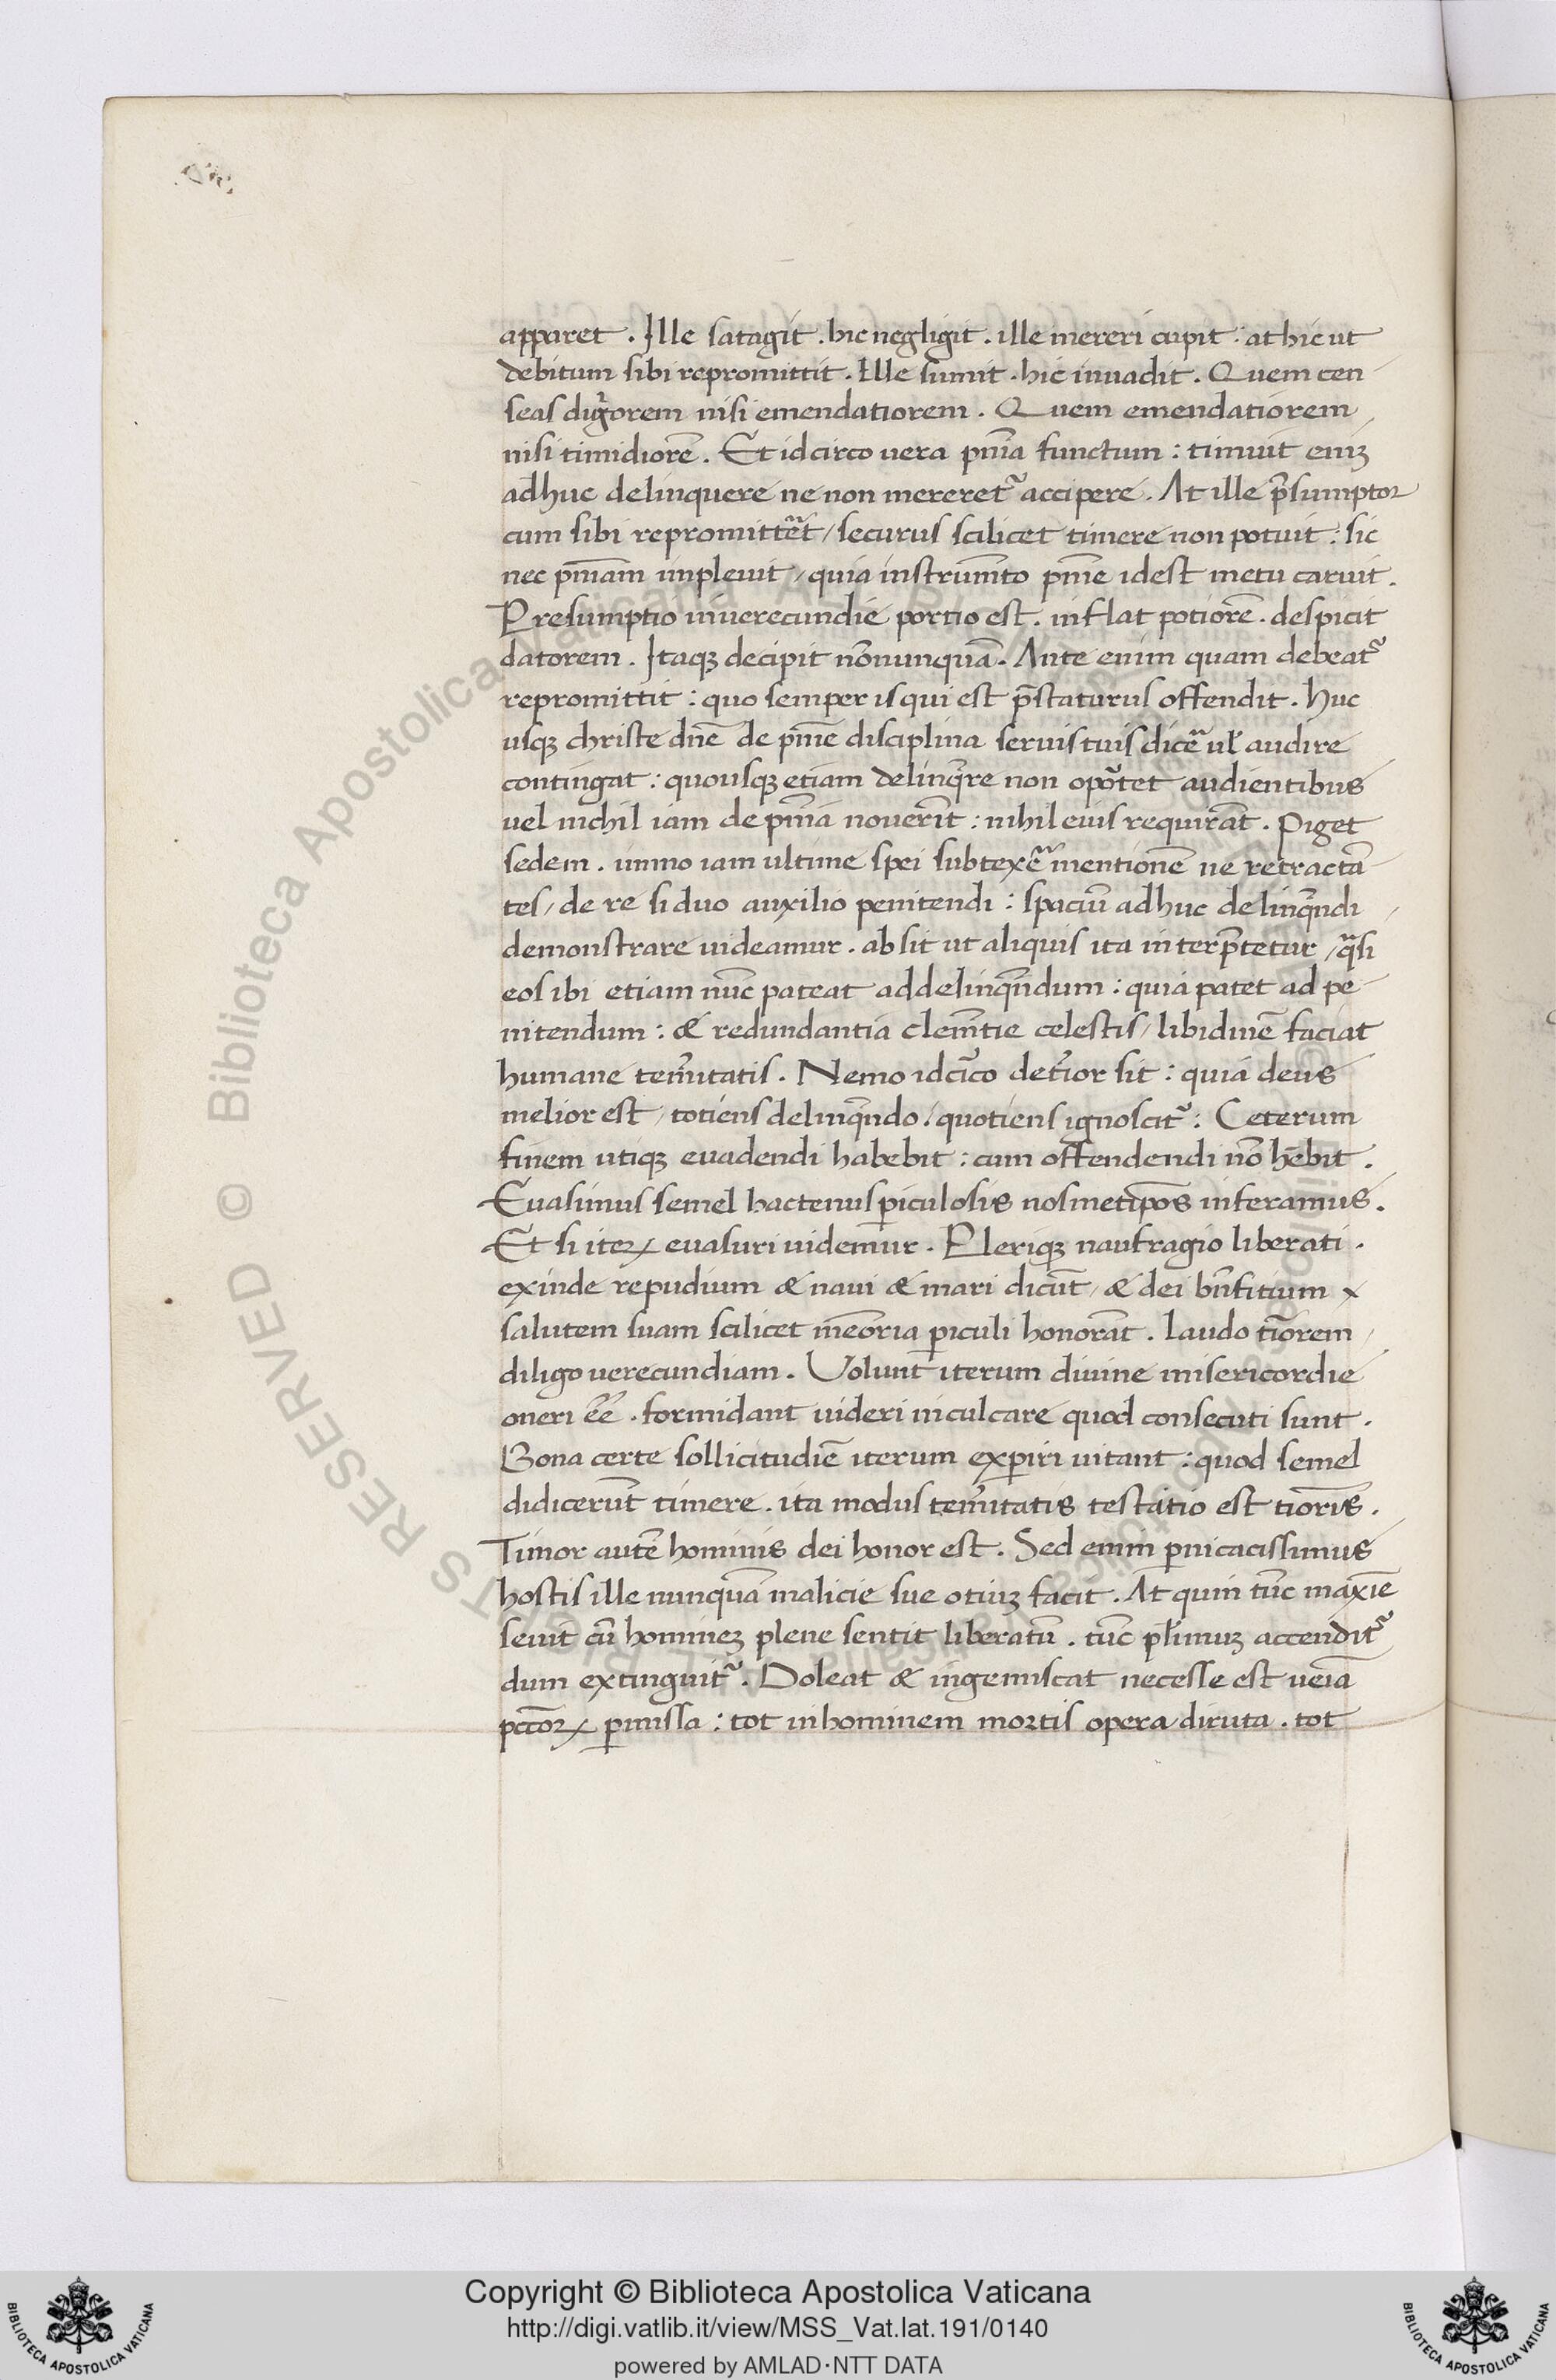 apparet . Ille satagit . hic negligit . ille mereri cupit : at hic ut
debitum sibi repromittit . Elle sumit . hic inuadit . Quem cen
seas digͥorem nisi emendatiorem . Quem emendatiorem
nisi timidiorē . Et idcirco uera pn̄ia functum : timuit eniꝫ
adhuc delinquere ne non mereret᷑ accipere . At ille p̄sumptor
cum sibi repromittēt / securus scilicet timere non potuit : sic
nec pn̄iam impleuit / quia instrum̄to pn̄ie idest metu caruit .
Presumptio inuerecundie portio est . inflat potiorē . despicit
datorem . Itaqꝫ decipit nōnunquā . Ante enim quam debeat᷑
repromittit : quo semper is qui est p̄staturus offendit . Huc
usqꝫ christe dn̄e de pn̄ie disciplina seruis tuis dicē᷑ ul̄ audire
contingat : quousqꝫ etiam delinq̄re non opo᷑tet audientibus
uel nichil iam de pn̄ia nouerīt : nihil eius requirāt . Piget
sedem . immo iam ultime spei subtexē᷑ mentionē ne retractā
tes / de re siduo auxilio penitendi : spaciū adhuc delinq̄ndi
demonstrare uideamur . absit ut aliquis ita interp̄tetur / qᷓsi
eos ibi etiam nūc pateat addelinq̄ndum : quia patet ad pe
nitendum : & redundantia clem̄tie celestis / libidinē faciat
humane tem̄itatis . Nemo idcͥco det̄ior sit : quia deus
melior est / totiens delinq̄ndo / quotiens ignoscit᷑ : Ceterum
finem utiqꝫ euadendi habebit : cum offendendi nō hēbit .
Euasimus semel hactenus ꝑiculosis nosmetip̄os inferamus .
Et si iteꝝ euasuri uidem̄ur . Pleriqꝫ naufragio liberati .
exinde repudium & naui & mari dicūt / & dei bn̄fitium ⁊
salutem suam scilicet mēoria ꝑiculi honorāt . laudo tīorem
diligo uerecundiam . Volunt iterum diuine misericordie
oneri ēē . formidant uideri inculcare quod consecuti sunt .
Bona certe sollicitudiē iterum exꝑiri uitant : quod semel
didicerūt timere . ita modus tem̄itatis testatio est tīoris .
Timor autē hominis dei honor est . Sed enim ꝑuicacissimus
hostis ille nunquā malicie sue otiuꝫ facit . At quin tūc maxīe
seuit cū homineꝫ plene sentit liberatū . tūc pl̄imuꝫ accendit᷑
dum extinguit᷑ . Doleat & ingemiscat necesse est ueīa
pctōꝝ ꝑmissa : tot inhominem mortis opera diruta . tot
Copyright © Biblioteca Apostolica Vaticana
http://digi.vatlib.it/view/MSS_Vat.lat.191/0140
powered by AMLAD·NTT DATA